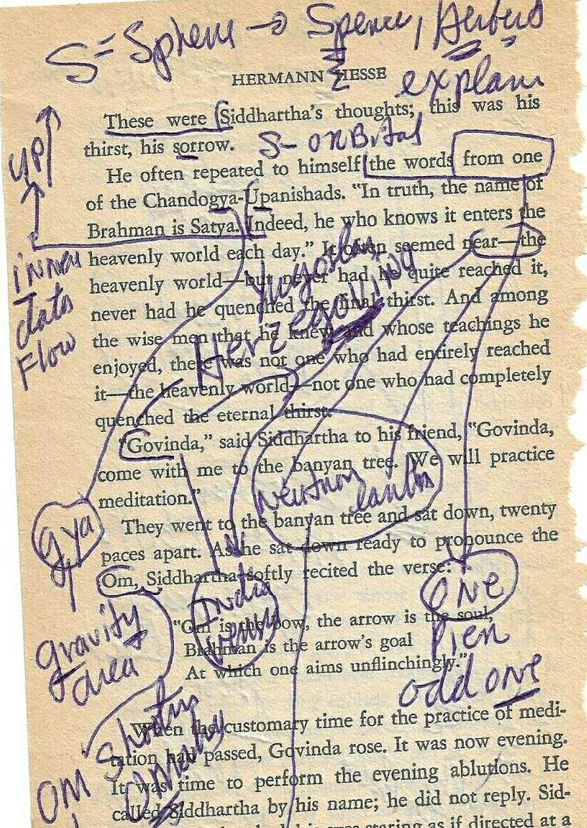 S = Sphere → Spence, Herbert
HERMANN HESSE
explain
These were Siddhartha's thoughts; this was his
thirst, his sorrow.
S- ORBital
up
He often repeated to himself the words from one
of the Chandogya-Upanishads. "In truth, the name of
Brahman is Satya. Indeed, he who knows it enters the
heavenly world each day." It often seemed near—the
heavenly world—but never had he quite reached it,
never had he quenched the final thirst. And among
the wise men that he knew and whose teachings he
enjoyed, there was not one who had entirely reached
it—the heavenly world—not one who had completely
quenched the eternal thirst.
inner
data
Flow
Herzegovina
"Govinda," said Siddhartha to his friend, "Govinda,
come with me to the banyan tree. We will practice
meditation."
They went to the banyan tree and sat down, twenty
paces apart. As he sat down ready to pronounce the
Om, Siddhartha softly recited the verse:
gya
gravity
area
India
ONE
odd one
"Om is the bow, the arrow is the soul,
Brahman is the arrow's goal
At which one aims unflinchingly."
When the customary time for the practice of medi-
tation had passed, Govinda rose. It was now evening.
It was time to perform the evening ablutions. He
called Siddhartha by his name; he did not reply. Sid-
OM